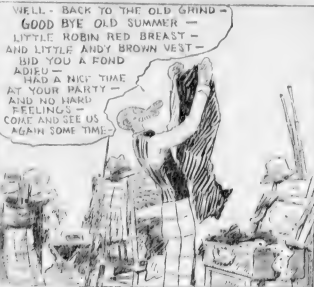 WELL - BACK TO THE OLD GRIND -
GOOD BYE OLD SUMMER -
LITTLE ROBIN RED BREAST -
AND LITTLE ANDY BROWN VEST -
BID YOU A FOND
ADIEU -
HAD A NICE TIME
AT YOUR PARTY -
AND NO HARD
FEELINGS -
COME AND SEE US
AGAIN SOME TIME -